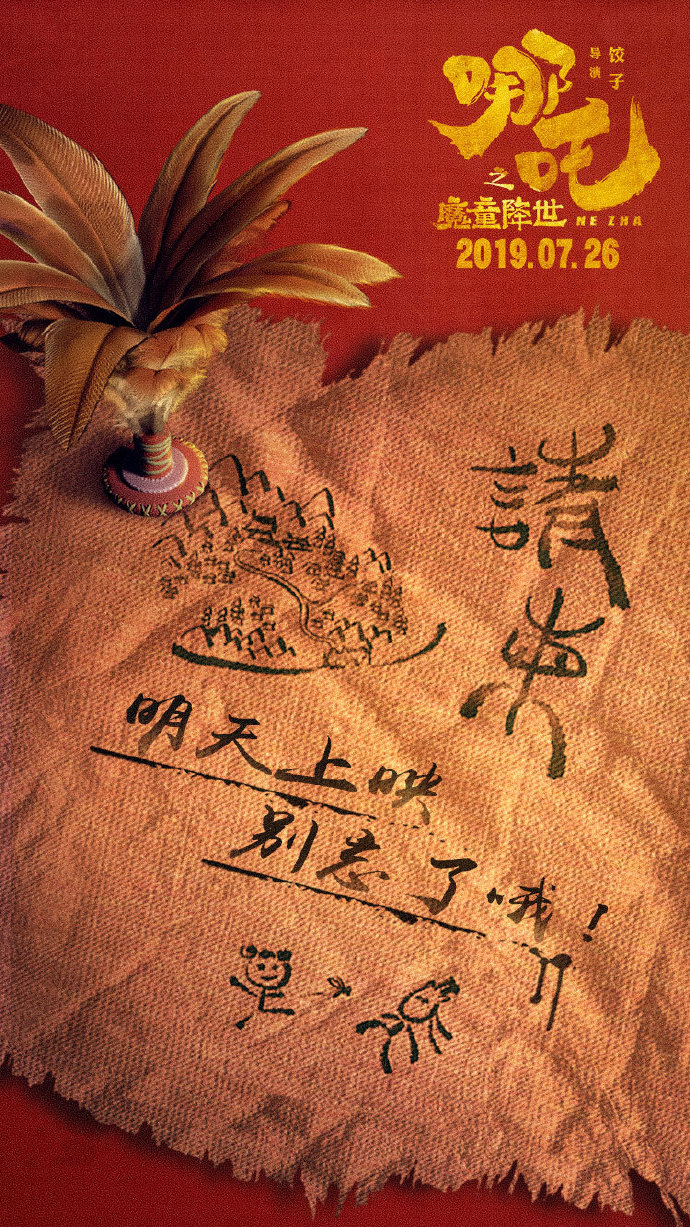 哪吒
之
魔童降世
NE ZHA
导演
饺子
2019.07.26
請柬
明天上映
别忘了哦！